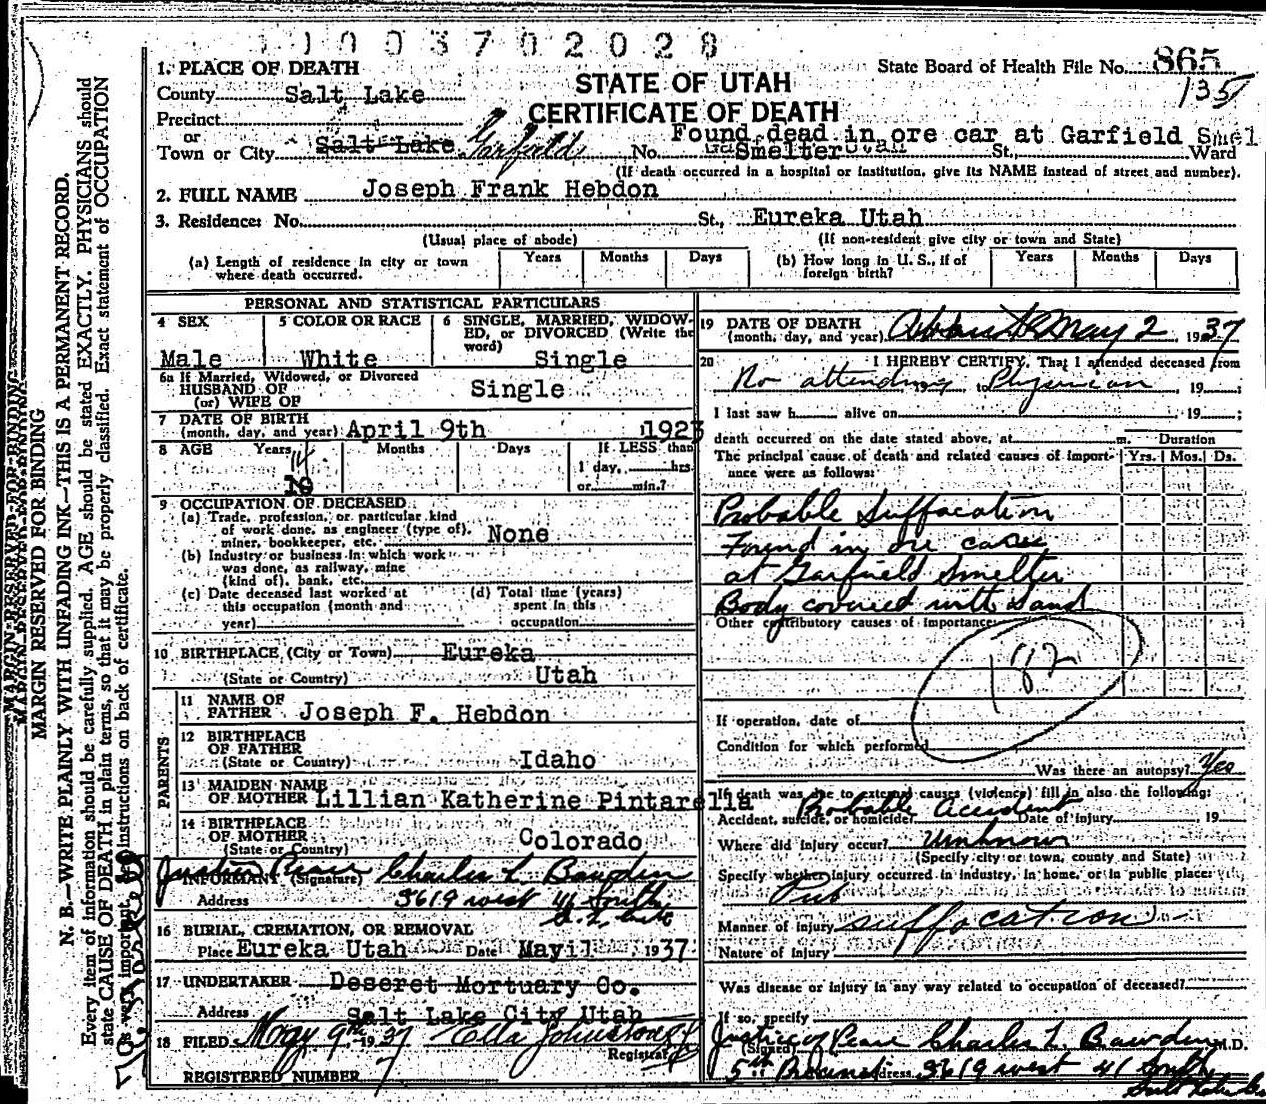 1 1 0 0 3 7 0 2 0 2 8
State Board of Health File No. 865
135
STATE OF UTAH
CERTIFICATE OF DEATH
1. PLACE OF DEATH
County Salt Lake
Precinct
or
Town or City Salt Lake Garfield No. Found dead in ore car at Garfield Smel
Smelter Utah St., Ward
(If death occurred in a hospital or institution, give its NAME instead of street and number).
2. FULL NAME Joseph Frank Hebdon
3. Residence: No. St., Eureka Utah
(Usual place of abode) (If non-resident give city or town and State)
(a) Length of residence in city or town where death occurred. Years Months Days (b) How long in U. S., if of foreign birth? Years Months Days
PERSONAL AND STATISTICAL PARTICULARS
4 SEX Male
5 COLOR OR RACE White
6 SINGLE, MARRIED, WIDOW-
ED, or DIVORCED (Write the
word) Single
6a If Married, Widowed, or Divorced
HUSBAND OF
(or) WIFE OF Single
7 DATE OF BIRTH
(month, day, and year) April 9th 1923
8 AGE Years 14 Months Days If LESS than
1 day, hrs.
or min.?
9 OCCUPATION OF DECEASED
(a) Trade, profession, or particular kind
of work done, as engineer (type of),
miner, bookkeeper, etc. None
(b) Industry or business in which work
was done, as railway, mine
(kind of), bank, etc.
(c) Date deceased last worked at
this occupation (month and
year)
(d) Total time (years)
spent in this
occupation
10 BIRTHPLACE (City or Town) Eureka
(State or Country) Utah
PARENTS
11 NAME OF
FATHER Joseph F. Hebdon
12 BIRTHPLACE
OF FATHER
(State or Country) Idaho
13 MAIDEN NAME
OF MOTHER Lillian Katherine Pintarelia
14 BIRTHPLACE
OF MOTHER
(State or Country) Colorado
Justice Peace Charles L Bawden
INFORMANT (Signature)
Address 3619 west 41 South
16 BURIAL, CREMATION, OR REMOVAL
Place Eureka Utah Date May 11 1937
17 UNDERTAKER Deseret Mortuary Co.
Address Salt Lake City Utah
18 FILED May 9th 1937 Ella Johnstons
Registrar
REGISTERED NUMBER 7
19 DATE OF DEATH
(month, day, and year) About May 2, 1937
20 I HEREBY CERTIFY, That I attended deceased from
No attending to Physician, 19 ;
I last saw h alive on , 19 ;
death occurred on the date stated above, at m. Duration
The principal cause of death and related causes of import-
ance were as follows: Yrs. Mos. Ds.
Probable Suffocation
Found in ore cars
at Garfield Smelter
Body covered with Sand
Other contributory causes of importance:
182
If operation, date of
Condition for which performed
Was there an autopsy? Yes
If death was due to external causes (violence) fill in also the following:
Accident, suicide, or homicide? Probable Accident Date of injury , 19
Where did injury occur? Unknown
(Specify city or town, county and State)
Specify whether injury occurred in industry, in home, or in public place:
Pub
Manner of injury suffocation
Nature of injury
Was disease or injury in any way related to occupation of deceased?
If so, specify
Justice of Peace Charles L Bawden
(Signed) M.D.
5th Precinct Address 3619 west 41 South
MARGIN RESERVED FOR BINDING
N. B.—WRITE PLAINLY WITH UNFADING INK—THIS IS A PERMANENT RECORD.
Every item of information should be carefully supplied. AGE should be stated EXACTLY. PHYSICIANS should
state CAUSE OF DEATH in plain terms, so that it may be properly classified. Exact statement of OCCUPATION
is very important. instructions on back of certificate.